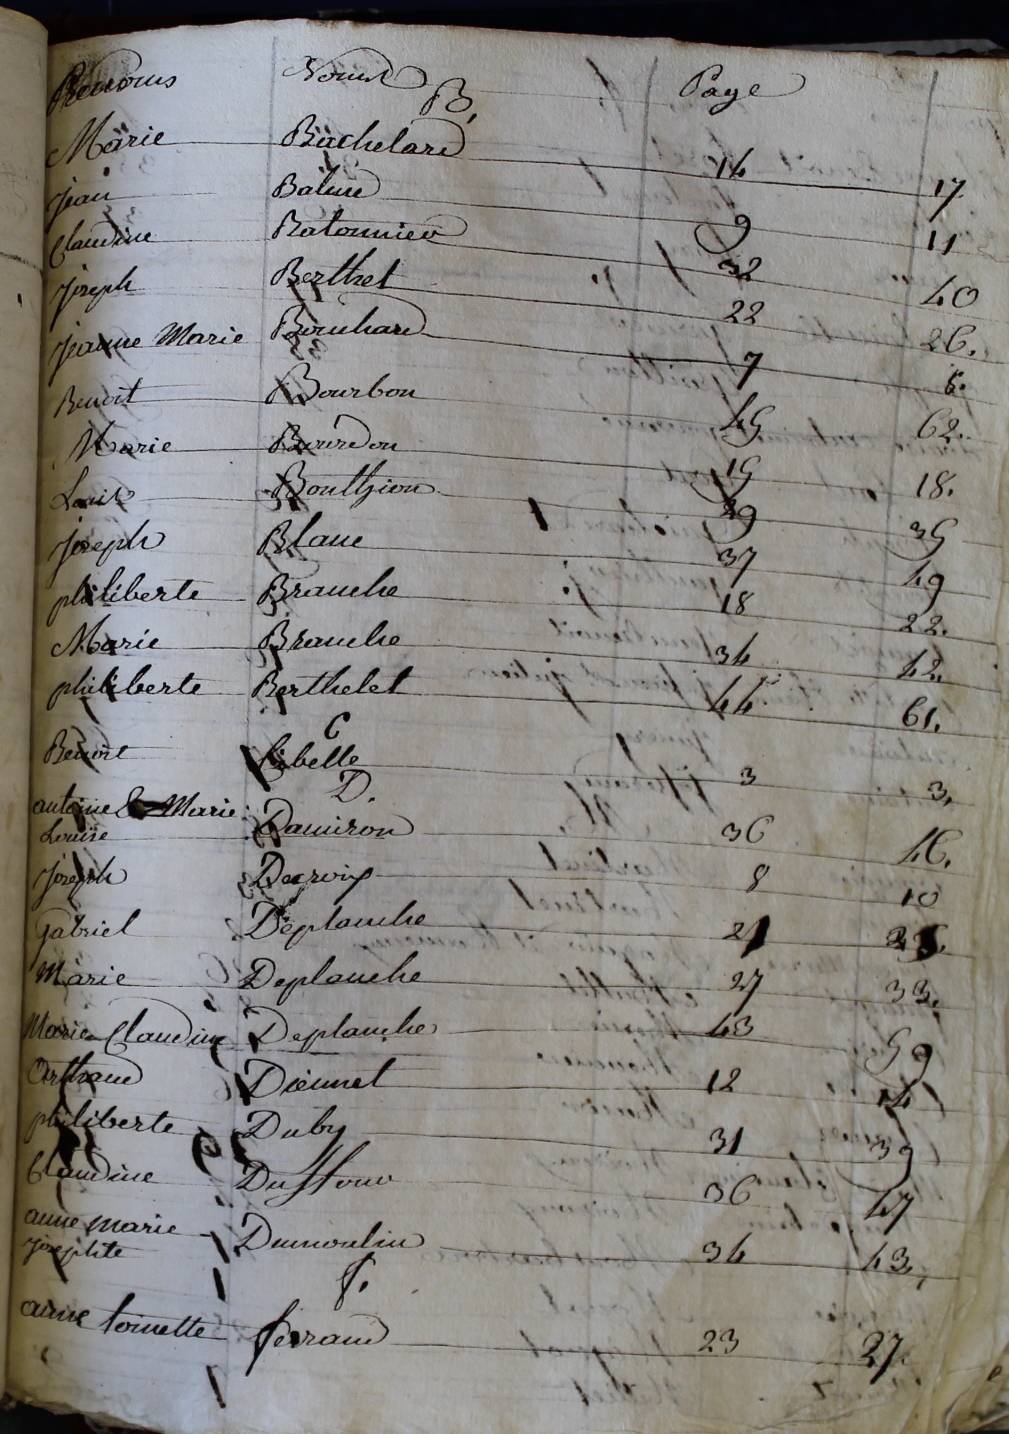 Prenoms Noms Page
B,
Marie Bachelard 14 17
Jean Balme 9 11
Claudine Batonnier 32 40
Joseph Berthet 22 26.
Jeanne Marie Bouchard 7 8.
Benoit Bourbon 45 62.
Marie Bourdon 15 18.
Louis Bouthion 29 35
Joseph Blanc 37 49
philiberte Branche 18 22.
Marie Branche 34 42.
philiberte Berthelet 44 61.
C
Benoit Cibelle 3 3.
D.
antoine & Marie
Louise Damiron 36 46.
Joseph Decroix 8 10
Gabriel Deplanche 21
Marie Deplanche 27 33.
Marie Claudine Deplanche 43 59
Orthand Diennet 12 14
philiberte Duby 31 39
Claudine Duffour 36 47
anne marie
Josephte Dumoulin 34 43.
f.
anne toinette ferrand 23 27.